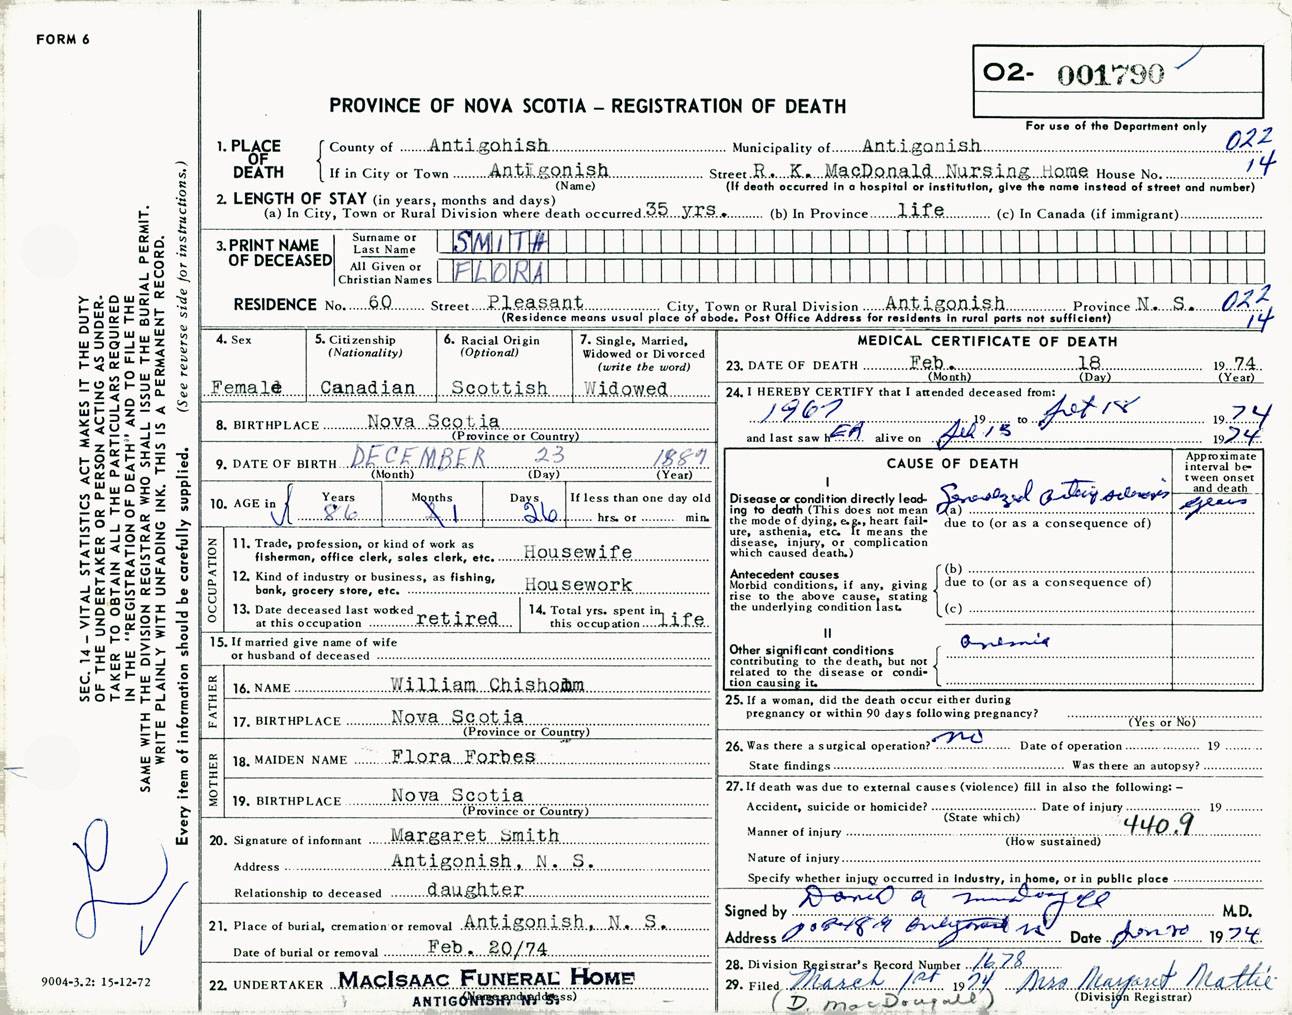 FORM 6
O2- 001790
PROVINCE OF NOVA SCOTIA – REGISTRATION OF DEATH
For use of the Department only
022
14
1. PLACE OF DEATH
County of Antigohish Municipality of Antigonish
If in City or Town Antigonish Street R. K. MacDonald Nursing Home House No.
(Name) (If death occurred in a hospital or institution, give the name instead of street and number)
2. LENGTH OF STAY (in years, months and days)
(a) In City, Town or Rural Division where death occurred 35 yrs. (b) In Province life (c) In Canada (if immigrant)
3. PRINT NAME OF DECEASED
Surname or Last Name SMITH
All Given or Christian Names FLORA
RESIDENCE No. 60 Street Pleasant City, Town or Rural Division Antigonish Province N. S. 022
(Residence means usual place of abode. Post Office Address for residents in rural parts not sufficient) 14
4. Sex
Female
5. Citizenship
(Nationality)
Canadian
6. Racial Origin
(Optional)
Scottish
7. Single, Married,
Widowed or Divorced
(write the word)
Widowed
8. BIRTHPLACE Nova Scotia
(Province or Country)
9. DATE OF BIRTH DECEMBER 23 1887
(Month) (Day) (Year)
10. AGE in Years Months Days If less than one day old
86 1 26 hrs. or min.
OCCUPATION
11. Trade, profession, or kind of work as
fisherman, office clerk, sales clerk, etc. Housewife
12. Kind of industry or business, as fishing,
bank, grocery store, etc. Housework
13. Date deceased last worked
at this occupation retired
14. Total yrs. spent in
this occupation life
15. If married give name of wife
or husband of deceased
FATHER
16. NAME William Chisholm
17. BIRTHPLACE Nova Scotia
(Province or Country)
MOTHER
18. MAIDEN NAME Flora Forbes
19. BIRTHPLACE Nova Scotia
(Province or Country)
20. Signature of informant Margaret Smith
Address Antigonish, N. S.
Relationship to deceased daughter
21. Place of burial, cremation or removal Antigonish, N. S.
Date of burial or removal Feb. 20/74
22. UNDERTAKER MACISAAC FUNERAL HOME
(Name and address)
ANTIGONISH, N. S.
MEDICAL CERTIFICATE OF DEATH
23. DATE OF DEATH Feb. 18 19 74
(Month) (Day) (Year)
24. I HEREBY CERTIFY that I attended deceased from:
1967 19 to 18 19 74
and last saw hER alive on 19 74
CAUSE OF DEATH
Approximate
interval be-
tween onset
and death
I
Disease or condition directly lead-
ing to death (This does not mean
the mode of dying, e.g., heart fail-
ure, asthenia, etc. It means the
disease, injury, or complication
which caused death.)
(a) Generalized arteriosclerosis years
due to (or as a consequence of)
Antecedent causes
Morbid conditions, if any, giving
rise to the above cause, stating
the underlying condition last.
(b)
due to (or as a consequence of)
(c)
II
Other significant conditions
contributing to the death, but not
related to the disease or condi-
tion causing it.
anemia
25. If a woman, did the death occur either during
pregnancy or within 90 days following pregnancy?
(Yes or No)
26. Was there a surgical operation? no Date of operation 19
State findings Was there an autopsy?
27. If death was due to external causes (violence) fill in also the following: –
Accident, suicide or homicide? Date of injury 19
(State which)
440.9
Manner of injury
(How sustained)
Nature of injury
Specify whether injury occurred in industry, in home, or in public place
Signed by Daniel M.D.
Address Date 1974
28. Division Registrar's Record Number 1678
29. Filed March 1st 1974 Mrs Margaret Mattie
(Division Registrar)
(D. MacDougall)
SEC. 14 – VITAL STATISTICS ACT MAKES IT THE DUTY
OF THE UNDERTAKER OR PERSON ACTING AS UNDER-
TAKER TO OBTAIN ALL THE PARTICULARS REQUIRED
IN THE "REGISTRATION OF DEATH" AND TO FILE THE
SAME WITH THE DIVISION REGISTRAR WHO SHALL ISSUE THE BURIAL PERMIT.
WRITE PLAINLY WITH UNFADING INK. THIS IS A PERMANENT RECORD.
Every item of information should be carefully supplied. (See reverse side for instructions.)
9004-3.2: 15-12-72